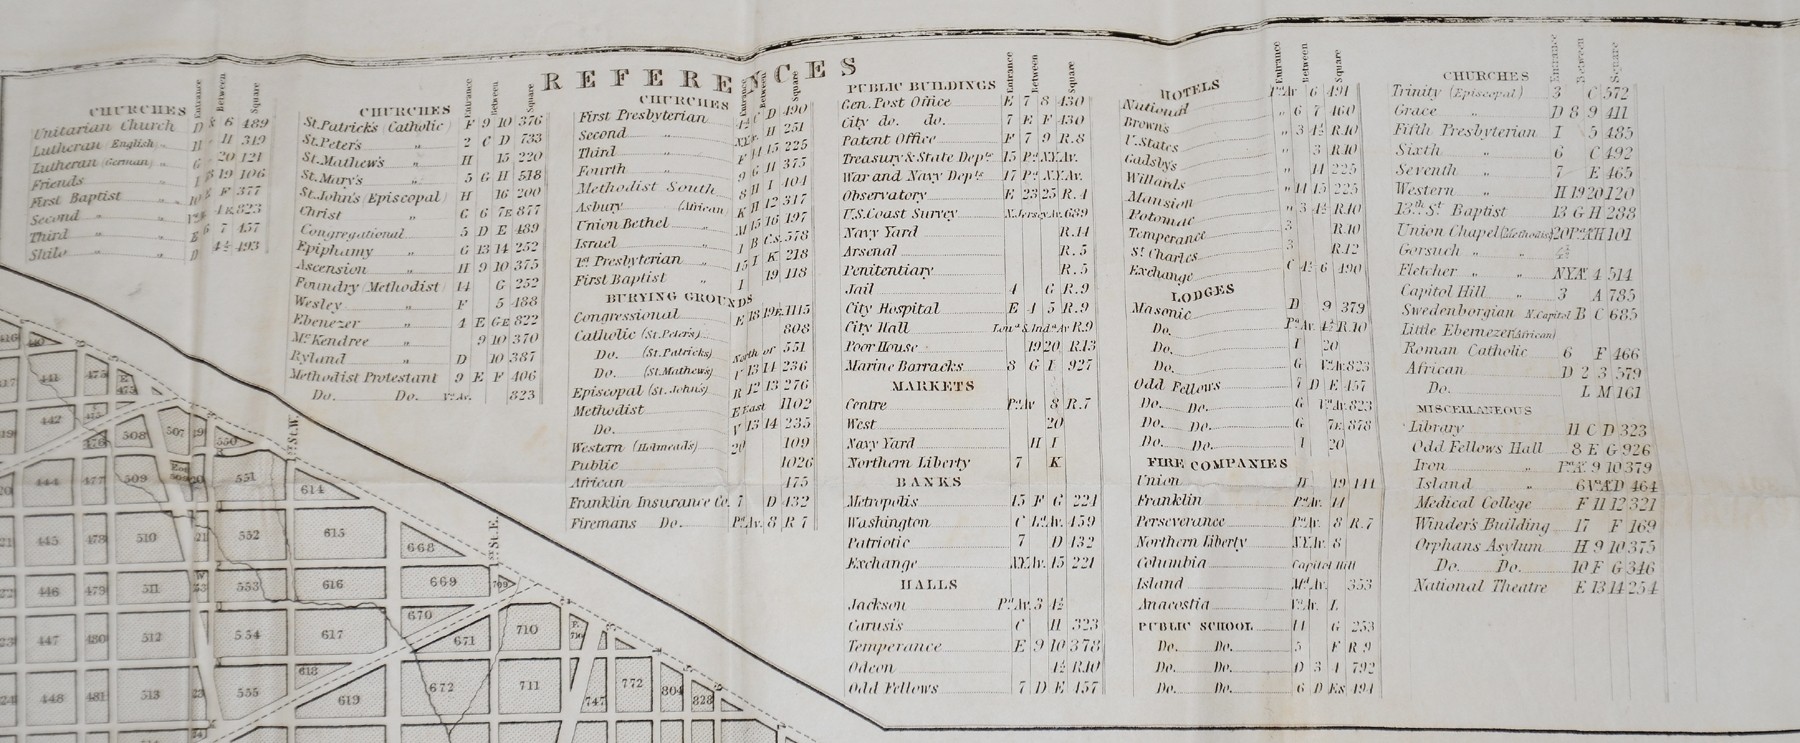 REFERENCES
CHURCHES Entrance Between Square
Unitarian Church D & 6 489
Lutheran (English) H H 319
Lutheran (German) G 20 121
Friends I 18 19 106
First Baptist 10 E F 377
Second " " 4 E 823
Third " " E 6 7 457
Shilo " " D 4½ 493
CHURCHES Entrance Between Square
St. Patricks (Catholic) F 9 10 376
St. Peter's " 2 C D 733
St. Mathew's " H 15 220
St. Mary's " 5 G H 518
St. John's (Episcopal) H 16 200
Christ " G 6 7E 877
Congregational 5 D E 489
Epiphamy " G 13 14 252
Ascension " H 9 10 375
Foundry (Methodist) 14 G 252
Wesley " F 5 488
Ebenezer " 4 E GE 822
Mc.Kendree " 9 10 370
Ryland " D 10 387
Methodist Protestant 9 E F 406
Do. Do. Va.Av. 823
CHURCHES Entrance Between Square
First Presbyterian 4½ C D 490
Second " N.Y.Av. H 251
Third " F 14 15 225
Fourth " 9 G H 375
Methodist South 8 H I 404
Asbury (African) K H 12 317
Union Bethel " M 15 16 197
Israel " 1 B C.S. 578
1st Presbyterian " 15 I K 218
First Baptist " I 19 118
BURYING GROUNDS
Congressional E 18 19E. 1115
Catholic (St. Peters) 808
Do. (St. Patricks) North of 551
Do. (St. Mathews) V 13 14 236
Episcopal (St. Johns) R 12 13 276
Methodist E East 1102
Do. V 13 14 235
Western (Holmeads) 20 109
Public 1026
African 475
Franklin Insurance Co. 7 D 432
Firemans Do. Pa.Av. 8 R 7
PUBLIC BUILDINGS Entrance Between Square
Gen. Post Office E 7 8 430
City do. do. 7 E F 430
Patent Office F 7 9 R.8
Treasury & State Depts. 15 Pa. N.Y.Av.
War and Navy Depts. 17 Pa. N.Y.Av.
Observatory E 23 25 R.4
U.S. Coast Survey N.Jersey Av. 689
Navy Yard R.14
Arsenal R.5
Penitentiary R.5
Jail 4 G R.9
City Hospital E 4 5 R.9
City Hall Loua. & Inda. Av R.9
Poor House 19 20 R.13
Marine Barracks 8 G I 927
MARKETS
Centre Pa.Av 8 R.7
West 20
Navy Yard H I
Northern Liberty 7 K
BANKS
Metropolis 15 F G 224
Washington C La.Av. 459
Patriotic 7 D 432
Exchange N.Y.Av. 15 221
HALLS
Jackson Pa.Av. 3 4½
Carusis C H 323
Temperance E 9 10 378
Odeon 4½ R.10
Odd Fellows 7 D E 457
HOTELS Entrance Between Square
National Pa.Av 6 491
Brown's " 6 7 460
U. States " 3 4½ R.10
Gadsby's " 3 R.10
Willards " 14 225
Mansion " 14 15 225
Potomac " 3 4½ R.10
Temperance 3 R.10
St. Charles 3 R.12
Exchange C 4½ 6 490
LODGES
Masonic D 9 379
Do. Pa.Av. 4½ R.10
Do. I 20
Do. G Va.Av. 823
Odd Fellows 7 D E 457
Do. Do. G Va.Av. 823
Do. Do. G 7E 878
Do. Do. I 20
FIRE COMPANIES
Union H 19 141
Franklin Pa.Av. 14
Perseverance Pa.Av. 8 R.7
Northern Liberty N.Y.Av. 8
Columbia Capitol Hill
Island Md.Av. 353
Anacostia Va.Av. L
PUBLIC SCHOOL 14 G 253
Do. Do. 5 F R 9
Do. Do. D 3 4 792
Do. Do. 6 D Es 494
CHURCHES Entrance Between Square
Trinity (Episcopal) 3 C 572
Grace " D 8 9 411
Fifth Presbyterian I 5 485
Sixth " 6 C 492
Seventh " 7 E 465
Western " H 19 20 120
13th. St Baptist 13 G H 288
Union Chapel (Methodist) 20 Pa.A H 101
Gorsuch " " 4½
Fletcher " " N.Y.Av. 4 514
Capitol Hill " 3 A 785
Swedenborgian N.Capitol B C 685
Little Ebernezer (African)
Roman Catholic 6 F 466
African D 2 3 579
Do. L M 161
MISCELLANEOUS
Library 11 C D 323
Odd Fellows Hall 8 E G 926
Iron " Pa.A. 9 10 379
Island " 6 Va.A D 464
Medical College F 11 12 321
Winder's Building 17 F 169
Orphans Asylum H 9 10 375
Do. Do. 10 F G 346
National Theatre E 13 14 254
416 440
417 441 475 E. 475
442 475
19 476 508 507 19 550
20 444 477 509 20 551 614
1st. St. W.
21 445 478 510 21 552 615 668
1st. St. E.
22 446 479 511 W 23 553 616 669 709
670
23 447 480 512 554 617 671 710 E. 710
618
24 448 481 513 23 555 619 672 711 747 772 804 828
514 24